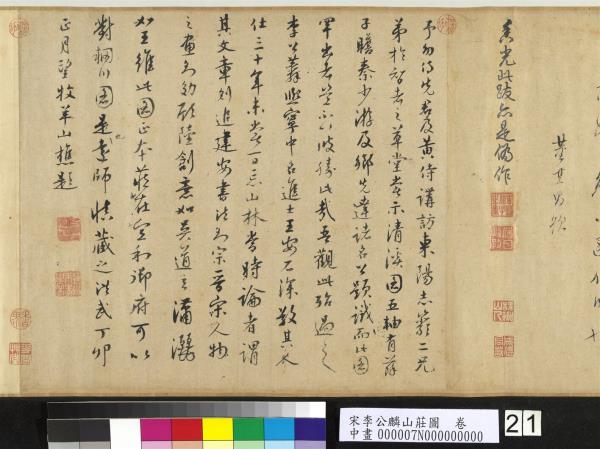 董其昌
香光此跋亦是偽作
予幼侍先君及黃侍講訪東陽志 二兄
弟於智者之草堂嘗示清淡圖五軸有蘇
子瞻秦少游及鄉先達諸名公題識而此圖
罕出者豈不以彼勝此哉吾觀此殆過之
李公 熙寧中名進士王安石深敬其人
仕三十年未嘗一日忘山林當時論者謂
其文章則追建安書法則宗晉宋人物
之畫則 顧陸創意如吳道之瀟灑
如王維此圖正本藏在宣和御府可以
對輞川圖是老師慎藏之洪武丁卯
正月望牧羊山樵題
宋李公麟山莊圖 卷
中畫 000007N000000000
21